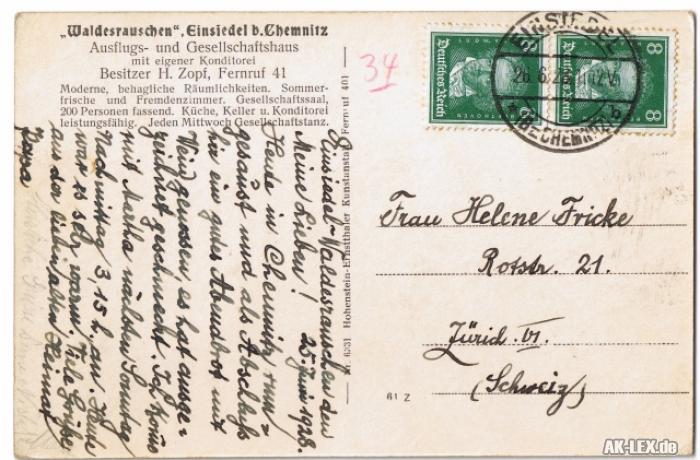 „Waldesrauschen“, Einsiedel b. Chemnitz
Ausflugs- und Gesellschaftshaus
mit eigener Konditorei
Besitzer H. Zopf, Fernruf 41
Moderne, behagliche Räumlichkeiten. Sommer-
frische und Fremdenzimmer. Gesellschaftssaal,
200 Personen fassend. Küche, Keller u. Konditorei
leistungsfähig. Jeden Mittwoch Gesellschaftstanz.
Einsiedel-Waldesrauschen den
25. Juni 1928.
Meine Lieben!
Heute in Chemnitz rum-
gesaust und als Abschluß
hier ein gutes Abendbrot mit
Wein genossen, es hat ausge-
zeichnet geschmeckt. Ich komme
mit Martha nächsten Sonntag
Nachmittag 3,15 h. an. Heute
war es sehr warm. Viele Grüße
aus der lieben alten Heimat
Nr. 6231 Hohenstein-Ernstthaler Kunstanstalt, Fernruf 401
34
8
Deutsches Reich
8
Deutsches Reich
EINSIEDEL
(BZ. CHEMNITZ)
b
Frau Helene Fricke
Rotstr. 21.
Zürich. VI.
(Schweiz)
61 Z
AK-LEX.de